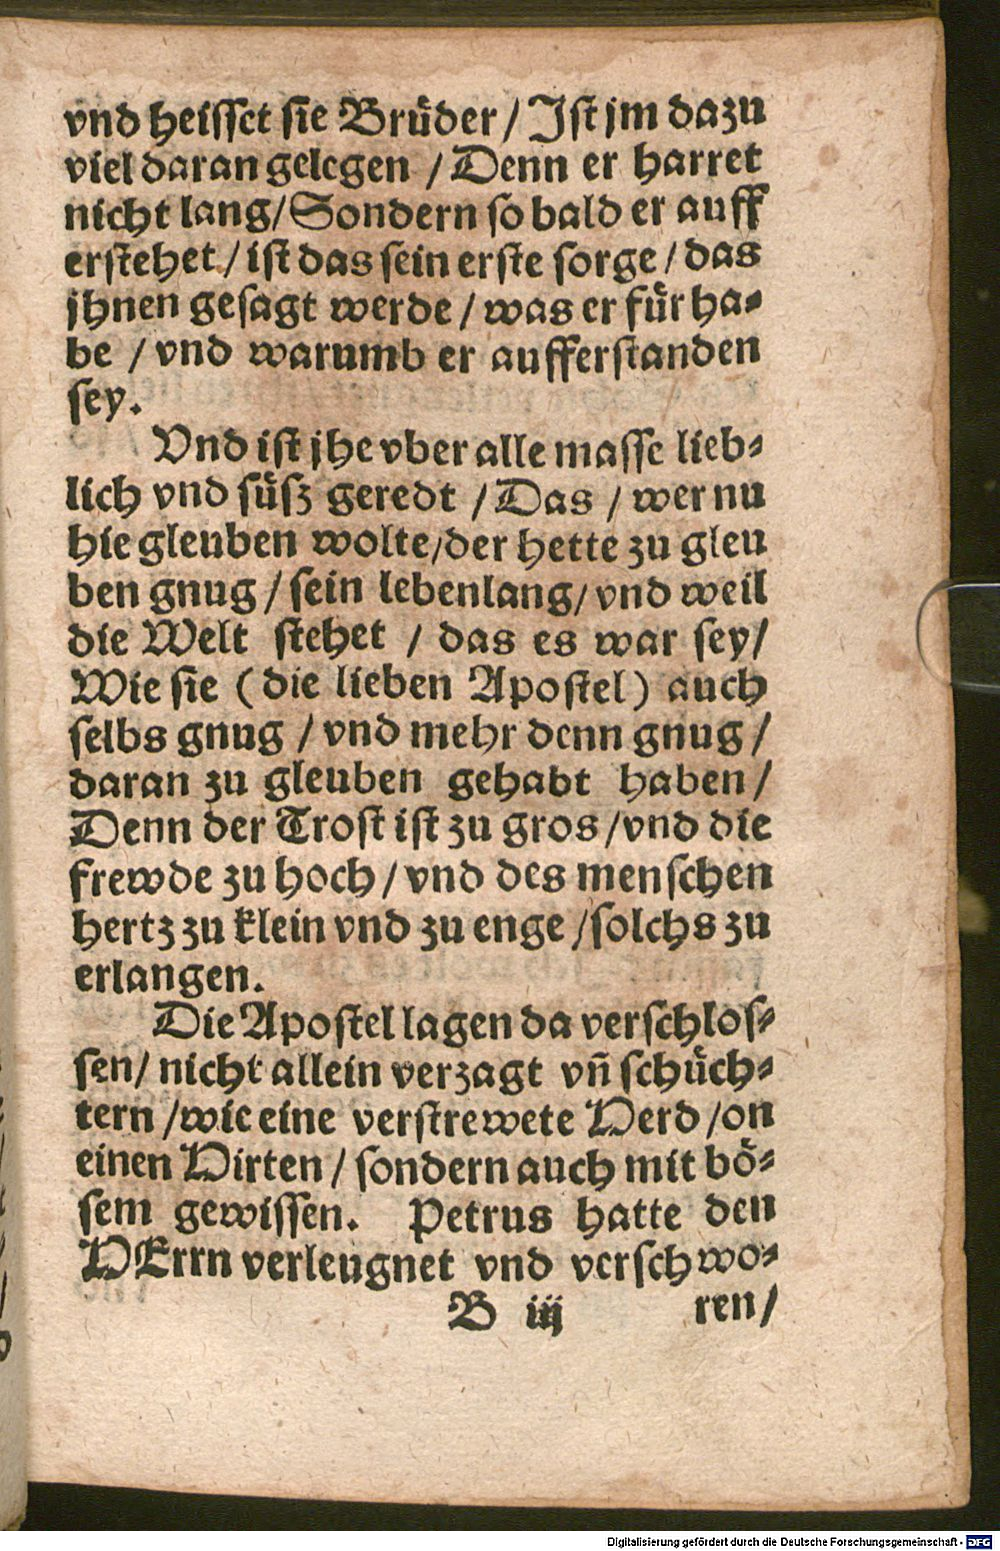 vnd heisset sie Brüder / Ist jm dazu
viel daran gelegen / Denn er harret
nicht lang / Sondern so bald er auff
erstehet / ist das sein erste sorge / das
jhnen gesagt werde / was er für ha-
be / vnd warumb er aufferstanden
sey.
Vnd ist jhe vber alle masse lieb-
lich vnd süsz geredt / Das / wer nu
hie gleuben wolte / der hette zu gleu
ben gnug / sein lebenlang / vnd weil
die Welt stehet / das es war sey /
Wie sie (die lieben Apostel) auch
selbs gnug / vnd mehr denn gnug /
daran zu gleuben gehabt haben /
Denn der Trost ist zu gros / vnd die
frewde zu hoch / vnd des menschen
hertz zu klein vnd zu enge / solchs zu
erlangen.
Die Apostel lagen da verschlos-
sen / nicht allein verzagt vñ schüch-
tern / wie eine verstrewete Herd / on
einen Hirten / sondern auch mit bö-
sem gewissen. Petrus hatte den
HErrn verleugnet vnd verschwo-
B iij ren /
Digitalisierung gefördert durch die Deutsche Forschungsgemeinschaft - DFG